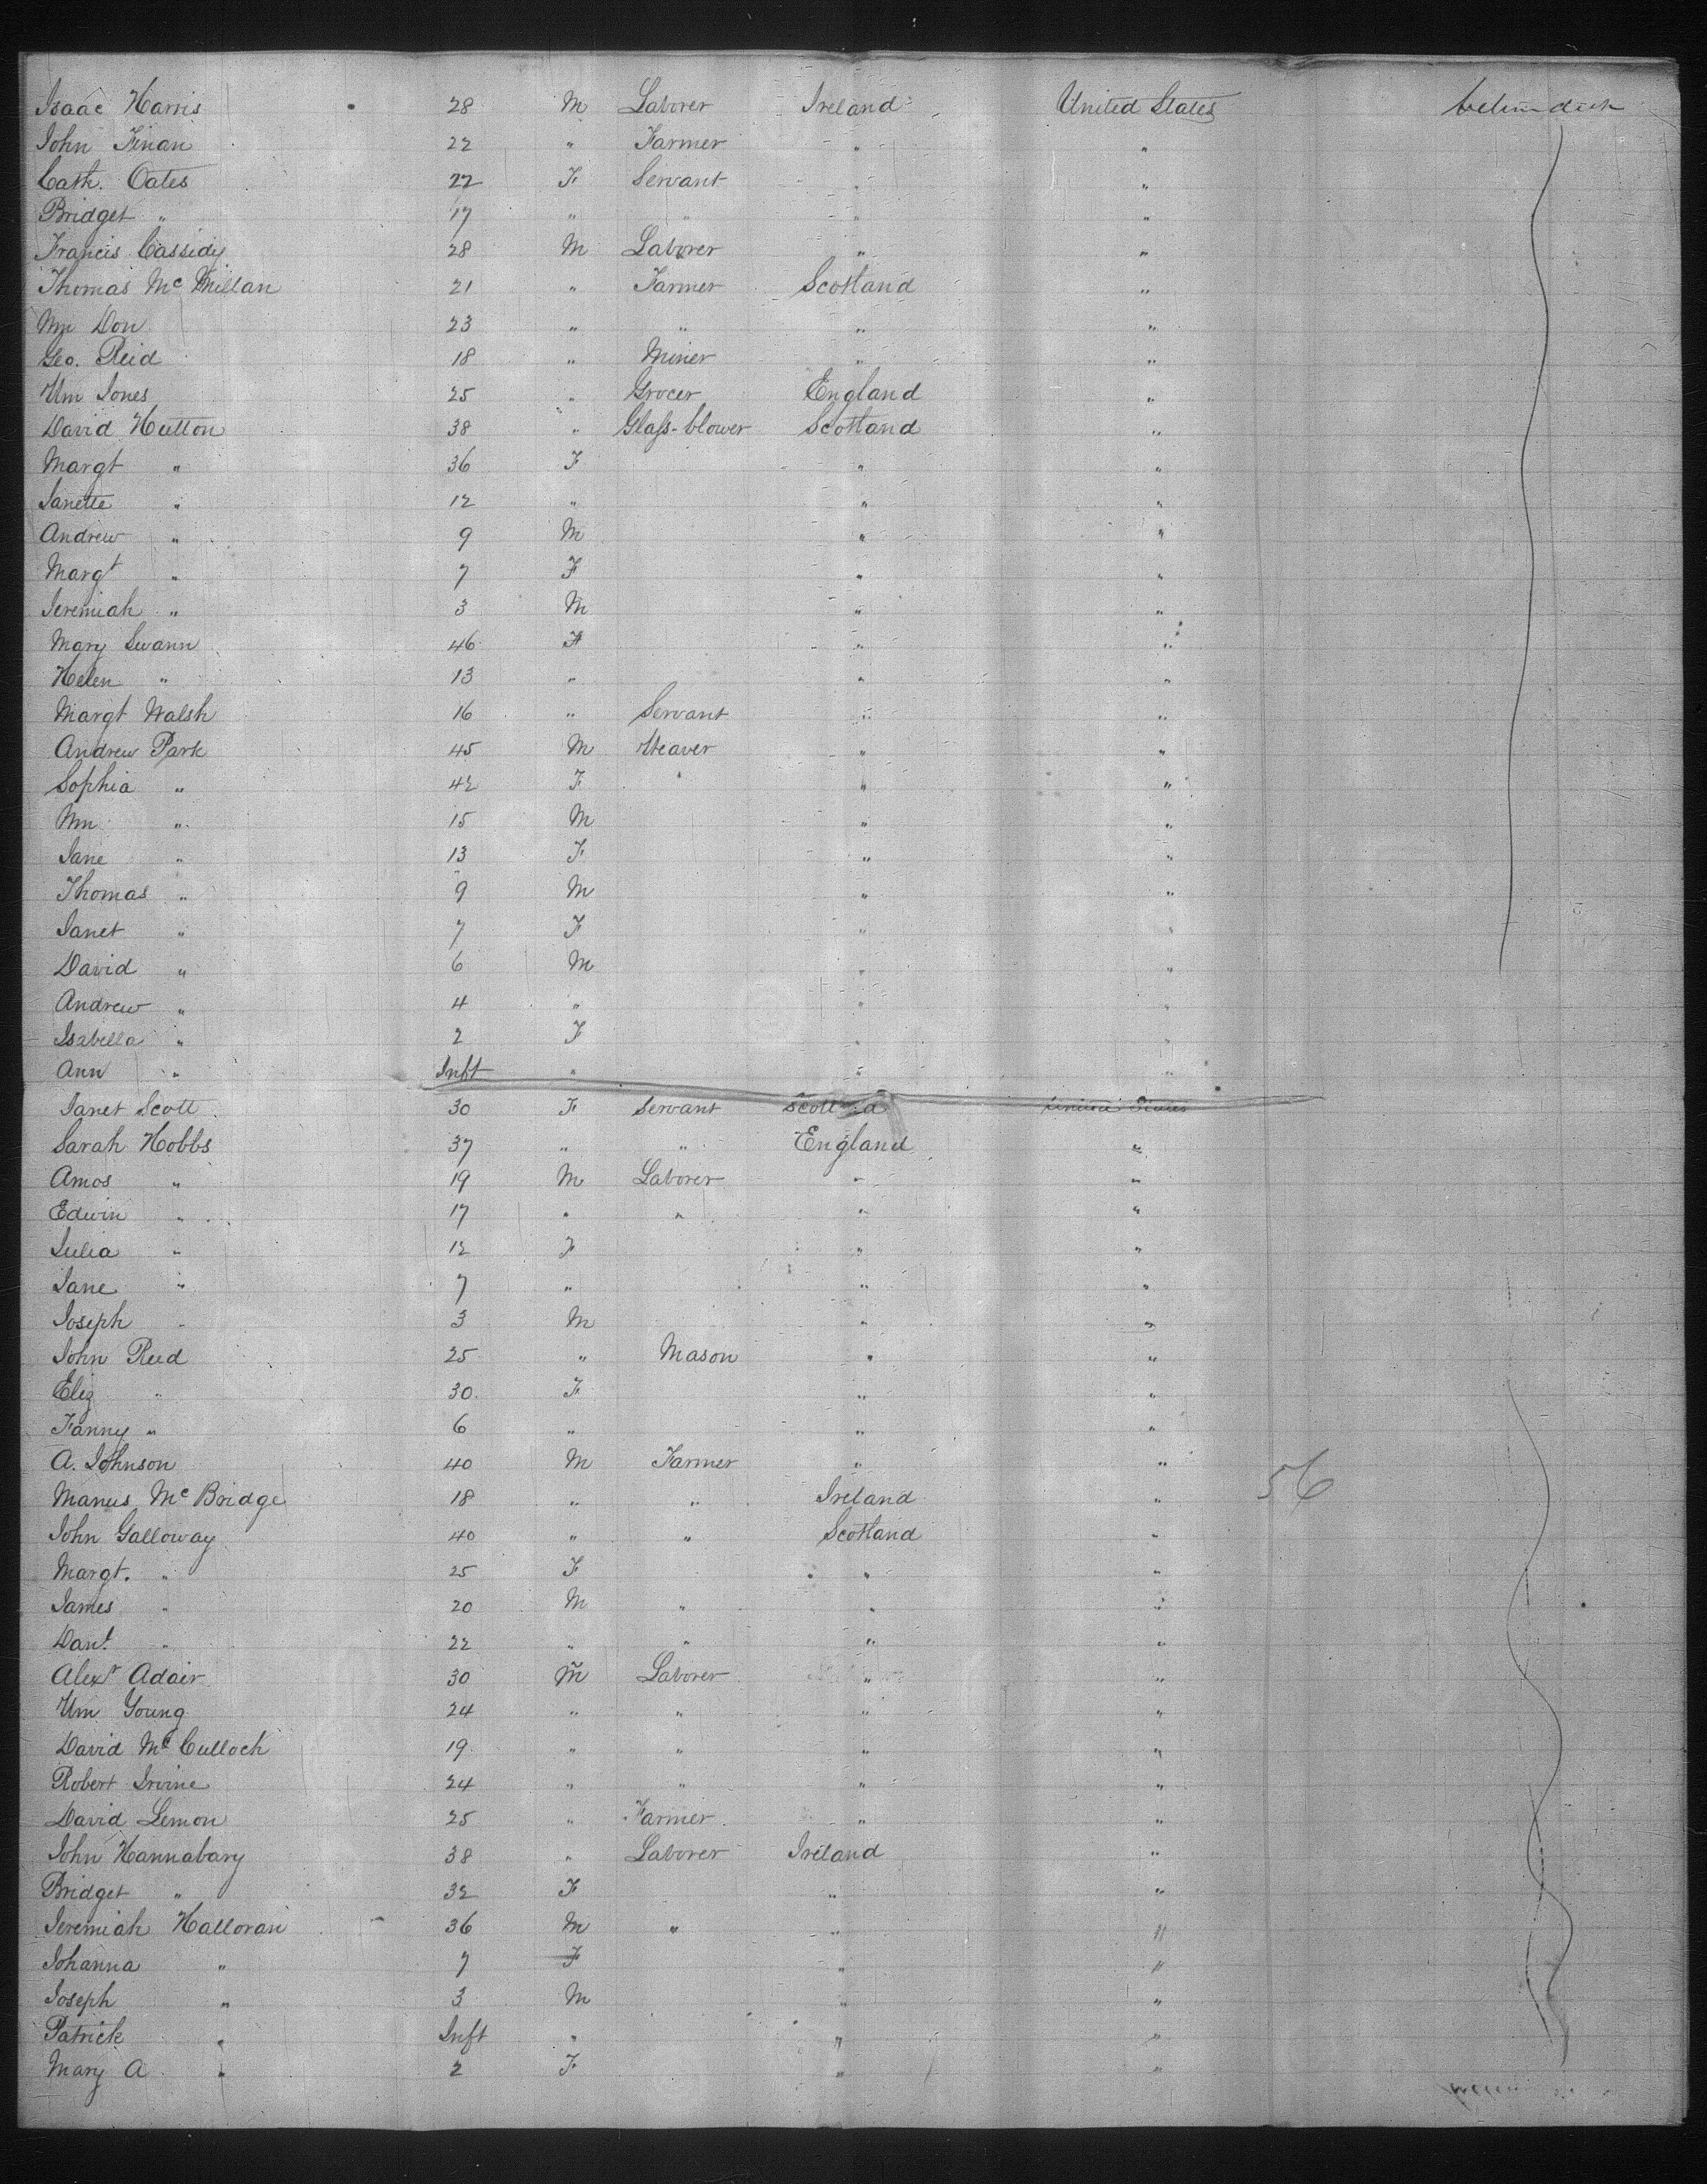 Isaac Harris 28 M Laborer Ireland United States between deck
John Finan 22 " Farmer " "
Cath. Oates 22 F Servant " "
Bridget " 17 " " " "
Francis Cassidy 28 M Laborer " "
Thomas Mc Millan 21 " Farmer Scotland "
Wm Don 23 " " " "
Geo. Reid 18 " Miner " "
Wm Jones 25 " Grocer England "
David Hutton 38 " Glass-blower Scotland "
Margt " 36 F " "
Janette " 12 " " "
Andrew " 9 M " "
Margt " 7 F " "
Jeremiah " 3 M " "
Mary Swann 46 F " "
Helen " 13 " " "
Margt Walsh 16 " Servant " "
Andrew Park 45 M Weaver " "
Sophia " 42 F " "
Wm " 15 M " "
Jane " 13 F " "
Thomas " 9 M " "
Janet " 7 F " "
David " 6 M " "
Andrew " 4 " " "
Isabella " 2 F " "
Ann " Inft " " "
Janet Scott 30 F Servant Scotland United States
Sarah Hobbs 37 " " England "
Amos " 19 M Laborer " "
Edwin " 17 " " " "
Julia " 12 F " "
Jane " 7 " " "
Joseph " 3 M " "
John Reed 25 " Mason " "
Eliz " 30 F " "
Fanny " 6 " " "
A. Johnson 40 M Farmer " "
Manus Mc Bridge 18 " " Ireland " 56
John Galloway 40 " " Scotland "
Margt. " 25 F " "
James " 20 M " " "
Danl " 22 " " " "
Alexr Adair 30 M Laborer " "
Wm Young 24 " " " "
David Mc Culloch 19 " " " "
Robert Irvine 24 " " " "
David Lemon 25 " Farmer " "
John Hannabary 38 " Laborer Ireland "
Bridget " 32 F " "
Jeremiah Halloran 36 M " " "
Johanna " 7 F " "
Joseph " 3 M " "
Patrick " Inft " " "
Mary A " 2 F " "